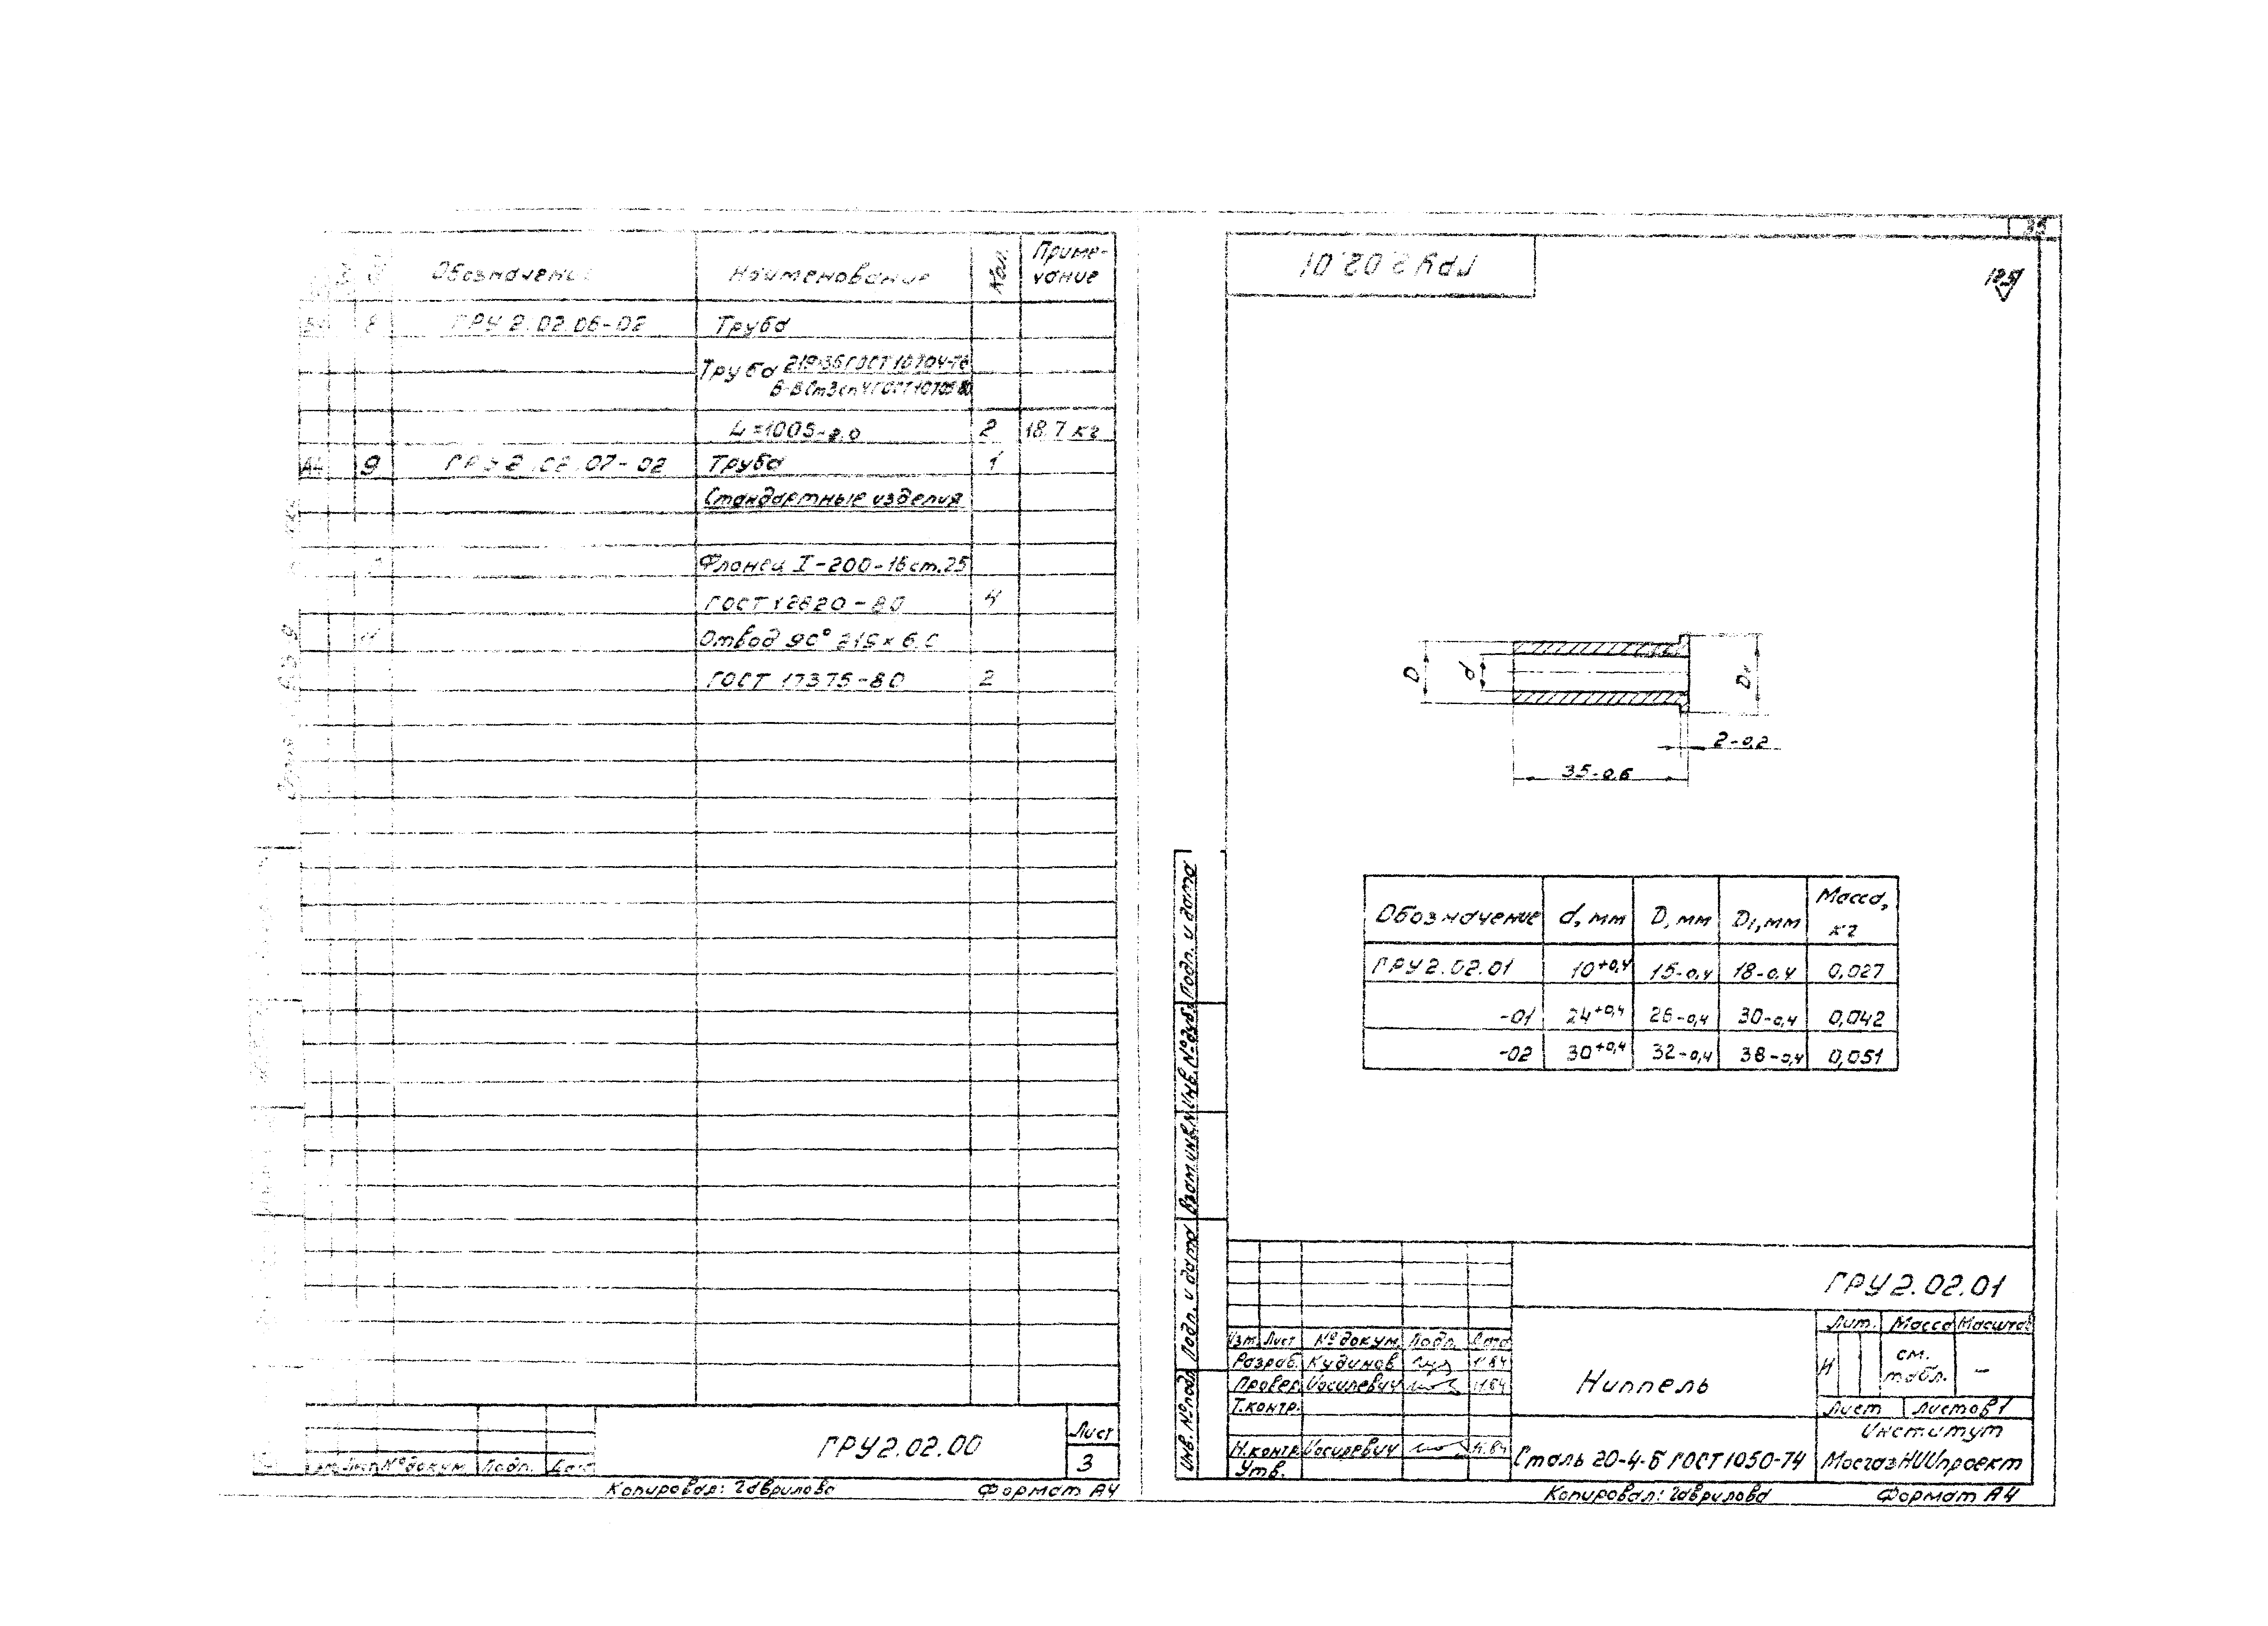 Обозначение Наименование Кол. Приме-
чание
8 ГРУ 2.02.06-02 Труба
Труба 219×3,6 ГОСТ 10704-76
В-ВСт3сп4 ГОСТ 10705-80
L=1005-2,0 2 18.7 кг
А4 9 ГРУ 2.02.07-02 Труба 1
Стандартные изделия
Фланец I-200-16 ст.25
ГОСТ 12820-80 4
11 Отвод 90° 219×6.0
ГОСТ 17375-80 2
№ докум. Подп. Дата
ГРУ2.02.00
Лист
3
Копировал: Гаврилова Формат А4
35
ГРУ 2.02.01
12,5
D d D₁
2-0,2
35-0,6
Обозначение d, мм D, мм D₁, мм Масса, кг
ГРУ2.02.01 10+0,4 15-0,4 18-0,4 0,027
-01 24+0,4 26-0,4 30-0,4 0,042
-02 30+0,4 32-0,4 38-0,4 0,051
Подп. и дата
Инв. № дубл.
Взам. инв. №
Подп. и дата
Инв. № подл.
ГРУ2.02.01
Изм. Лист № докум. Подп. Дата
Разраб. Кудинов 11.84
Провер. Иосилевич 11.84
Т.контр.
Н.контр. Иосилевич 11.84
Утв.
Ниппель
Лит. Масса Масштаб
И см. табл. –
Лист Листов 1
Сталь 20-4-Б ГОСТ 1050-74
Институт
МосгазНИИпроект
Копировал: Гаврилова Формат А4